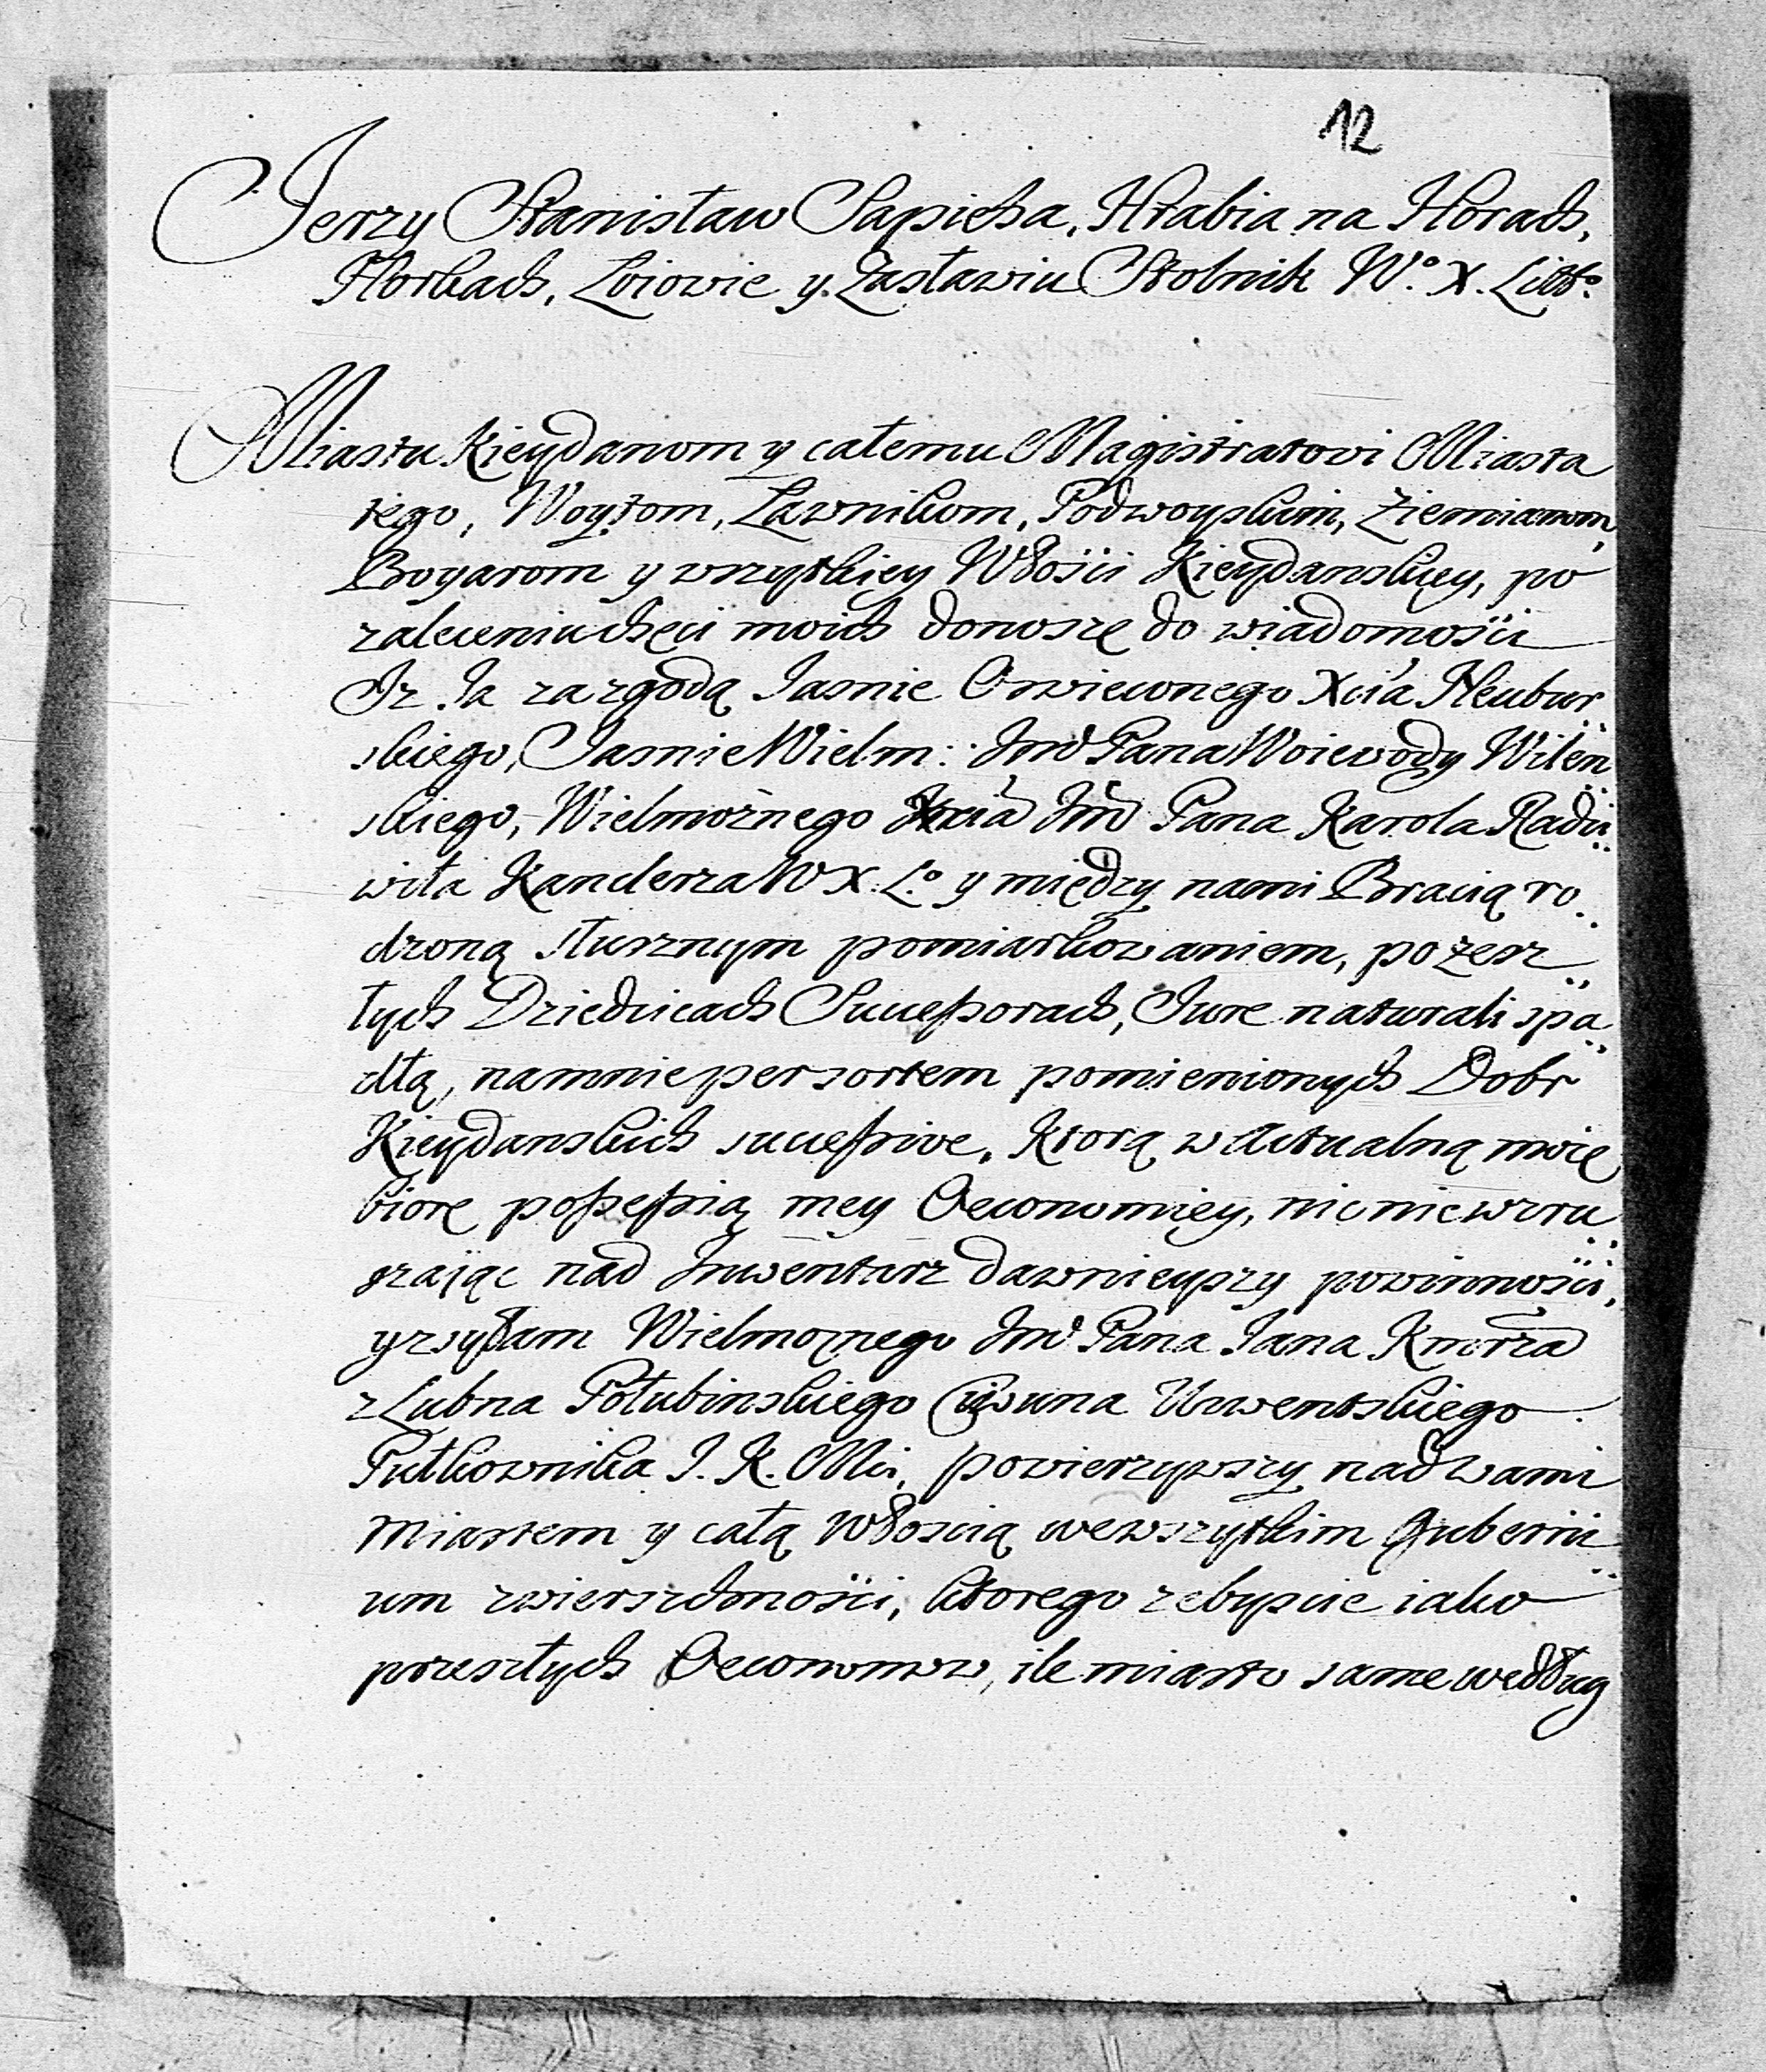 12
Jerzy Stanisław Sapieha, Hrabia na Horach,
Horkach, Loiowie y Zasławiu Stolnik Wº. X. Littº.
Miastu Kieydanom y całemu Magistratowi Miasta
tego, Woytom, Ławnikom, Podwoyskim, Ziemianom,
Boyarom y wszytkiey Włości Kieydanskiey, po
zaleceniu chęci moich donoszę do wiadomości
Iz Ja za zgodą Jasnie Oswieconego Xcia Neubur
skiego, Jasnie Wielm: Jmć Pana Woiewody Wilen
skiego, Wielmożnego Xcia Jmć Pana Karola Radzi
wiła Kanclerza W X. Lº. y między nami Bracią ro
dzoną słusznym pomiarkowaniem, po zesz
łych Dziedzicach Successorach, Jure naturali spa
dłą, na mnie per sortem pomienionych Dobr
Kieydanskich successive, ktorą w actualną moię
biorę possessią mey Oeconomiey, nic nie wzru
szając nad Inwentarz dawnieyszy powinności,
y zsyłam Wielmoznego Jmć Pana Jana Kmcrza
z Lubna Połubinskiego Ciwuna Urwentskiego
Pułkownika J. K. Mci, powierzywszy nad wami
Miastem y całą Włoscią we wszytkim Guberni
um zwierzchności, ktorego zebyscie iako
przeszłych Oeconomow, ile miasto same według